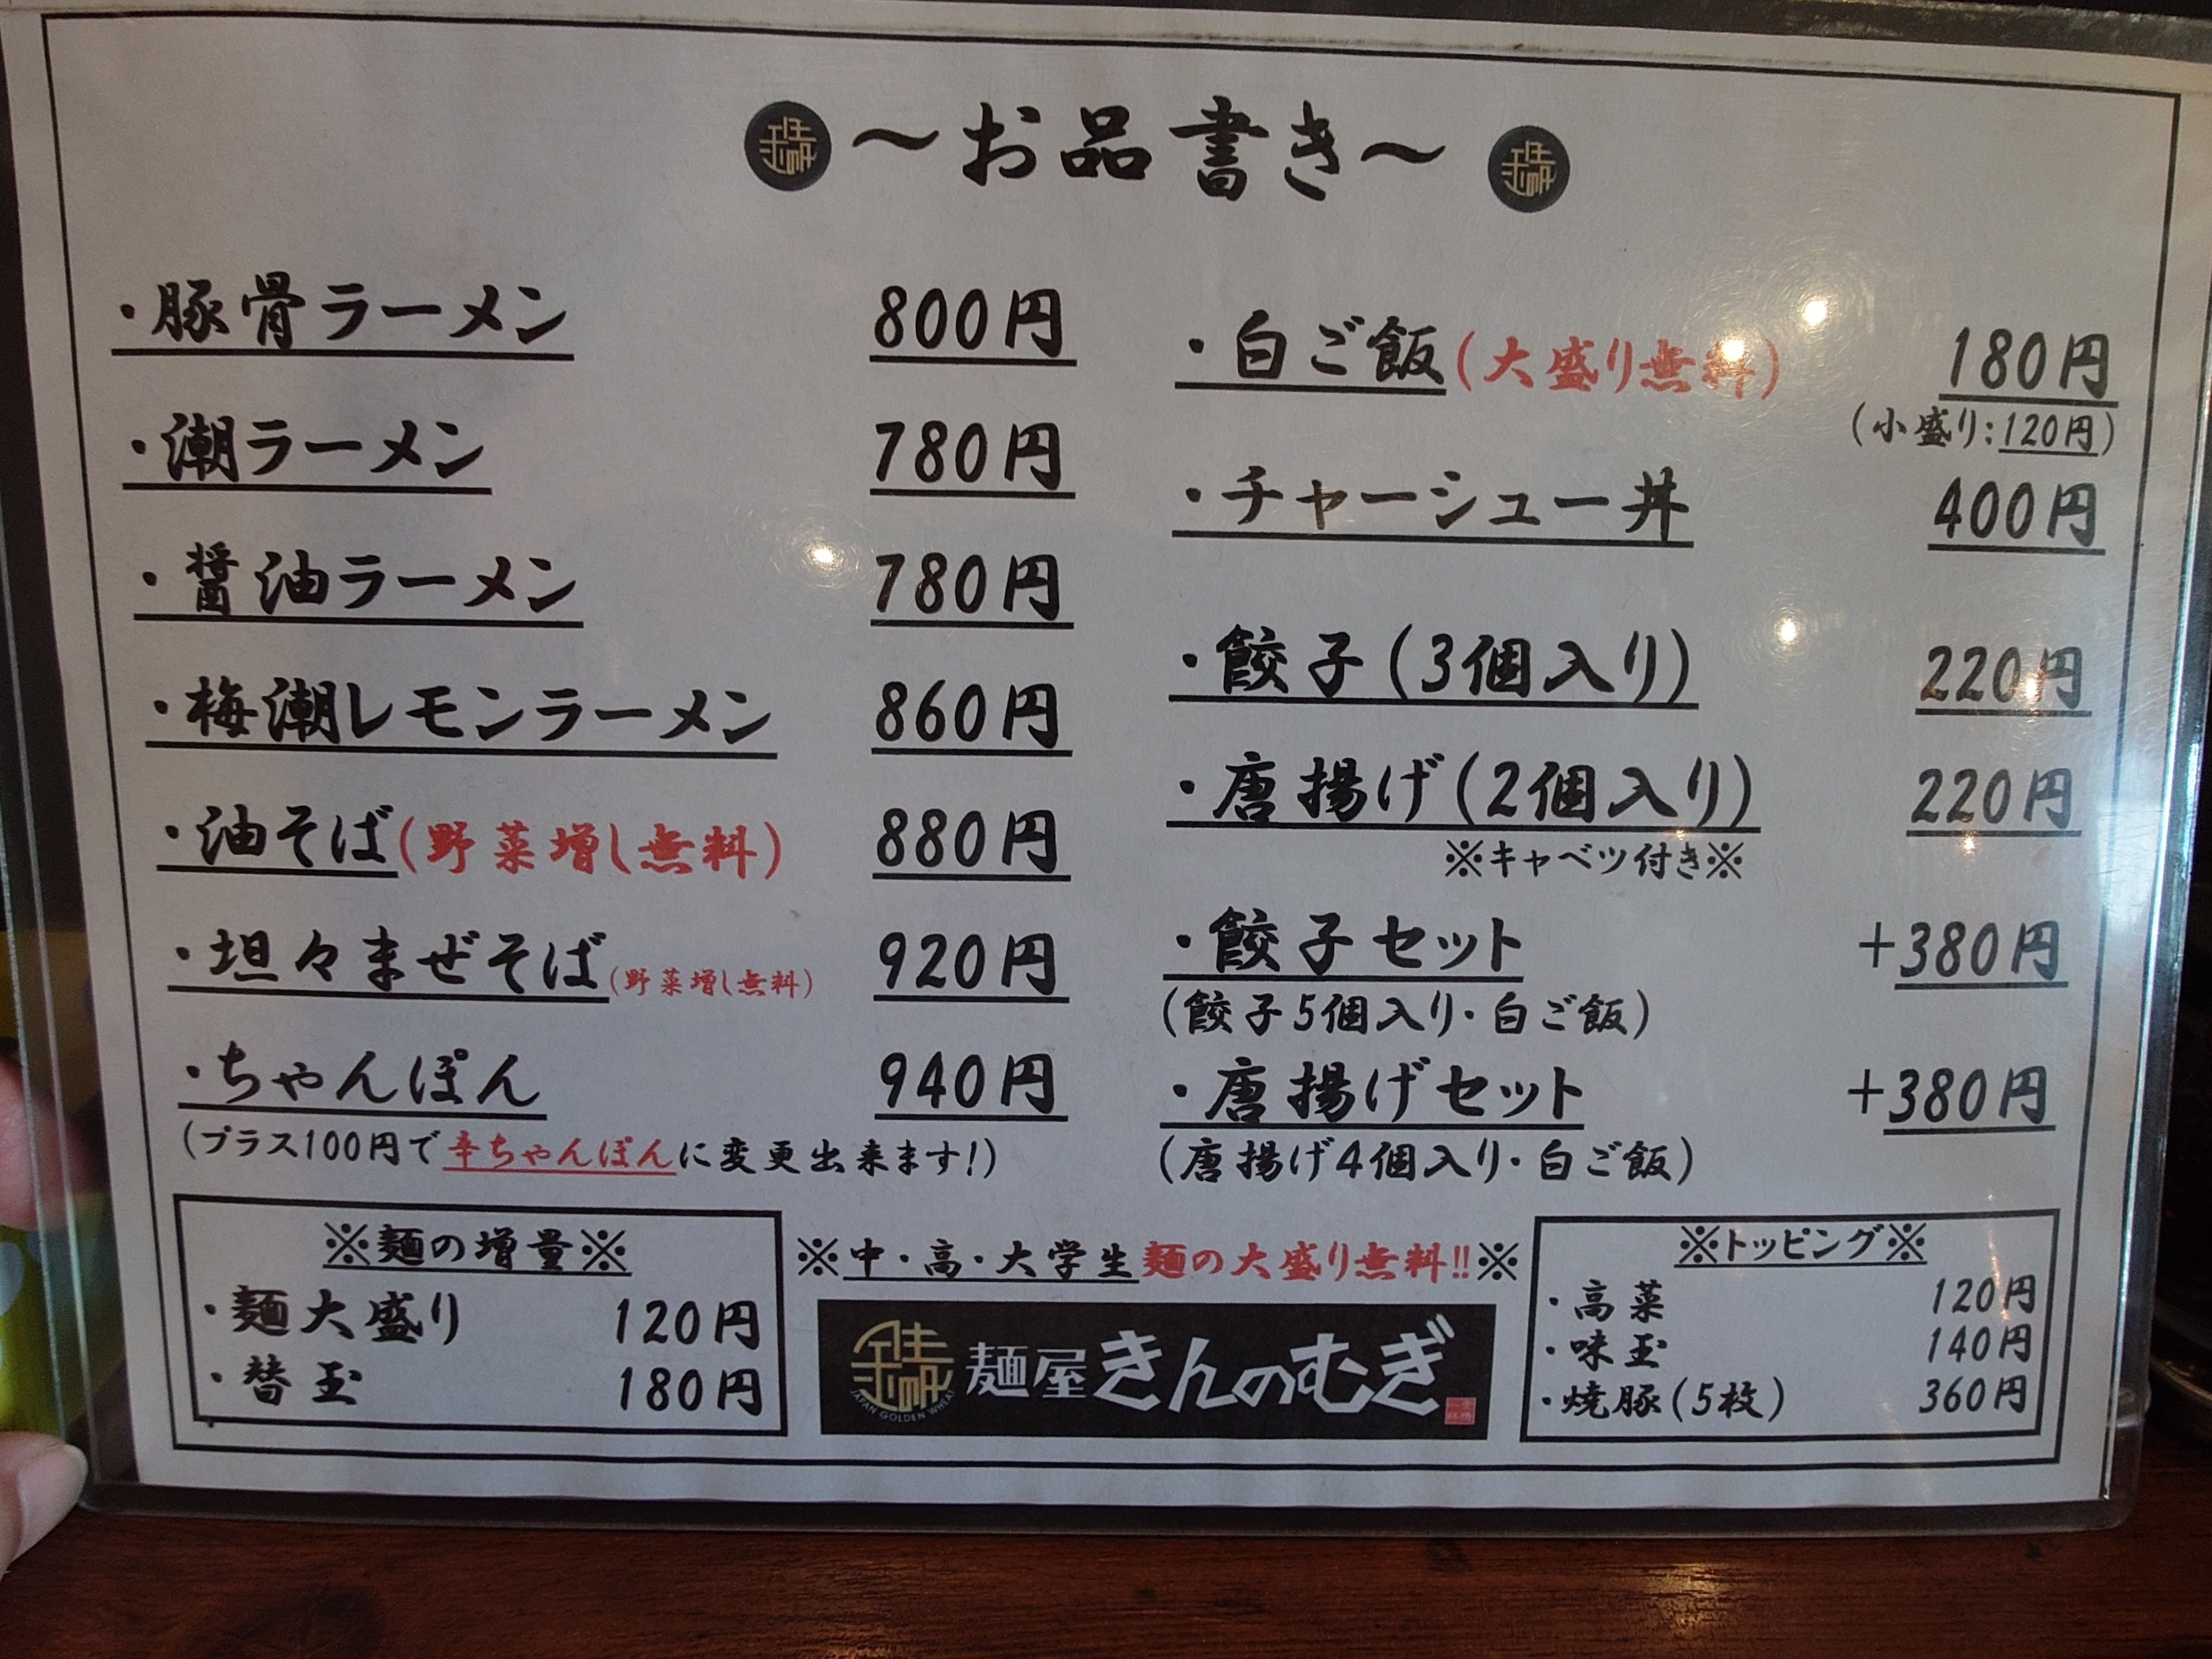 ～お品書き～
・豚骨ラーメン 800円
・潮ラーメン 780円
・醤油ラーメン 780円
・梅潮レモンラーメン 860円
・油そば(野菜増し無料) 880円
・坦々まぜそば(野菜増し無料) 920円
・ちゃんぽん 940円
(プラス100円で辛ちゃんぽんに変更出来ます!)
・白ご飯(大盛り無料) 180円
(小盛り:120円)
・チャーシュー丼 400円
・餃子(3個入り) 220円
・唐揚げ(2個入り) 220円
※キャベツ付き※
・餃子セット +380円
(餃子5個入り・白ご飯)
・唐揚げセット +380円
(唐揚げ4個入り・白ご飯)
※麺の増量※
・麺大盛り 120円
・替玉 180円
※中・高・大学生麺の大盛り無料!!※
麺屋きんのむぎ
JAPAN GOLDEN WHEAT
※トッピング※
・高菜 120円
・味玉 140円
・焼豚(5枚) 360円